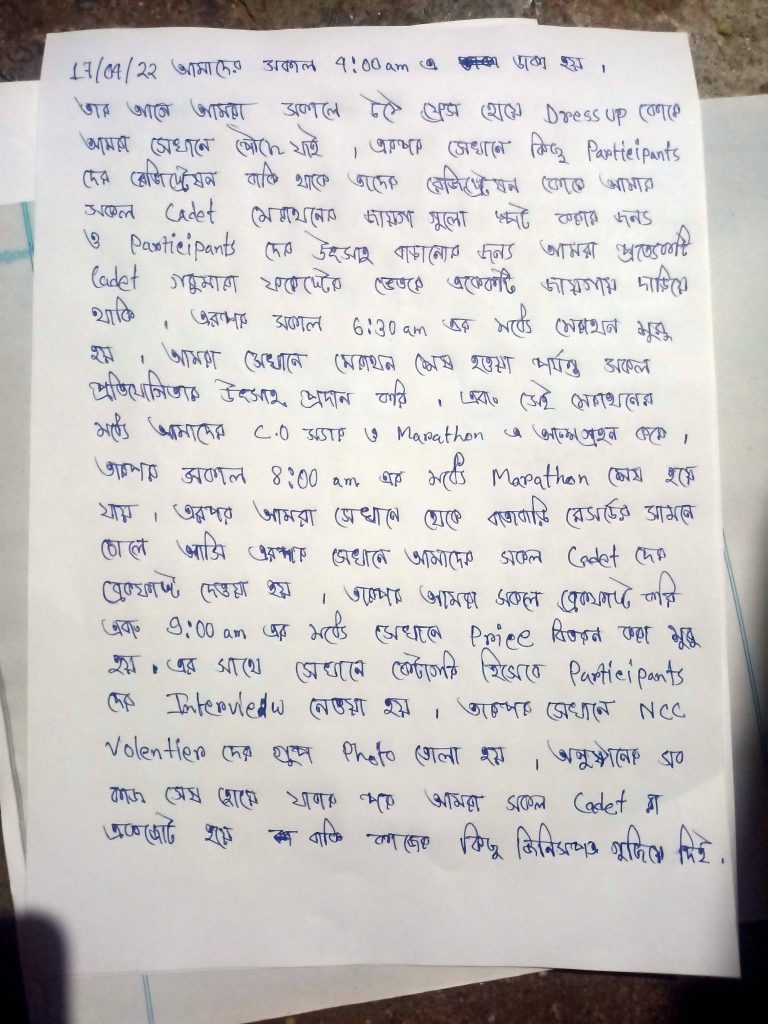 17/04/22 আমাদের সকাল 4:00 am এ ডাকা হয় ।
তার আগে আমরা সকালে উঠে ফ্রেস হোয়ে Dress up কোরে
আমরা সেখানে পৌছে যাই । এরপর সেখানে কিছু Participants
দের রেজিস্ট্রেষন বাকি থাকে তাদের রেজিস্ট্রেষন কোরে আমার
সকল Cadet মেরাথনের জায়গা গুলো করার জন্য
ও Participants দের উৎসাহ বাড়ানোর জন্য আমরা প্রত্যেকটি
Cadet গরুমারা ফরেস্টের ভেতরে একেকটি জায়গায় দাড়িয়ে
থাকি । এরপর সকাল 6:30 am এর মধ্যে মেরাথন শুরু
হয় । আমরা সেখানে মেরাথন শেষ হওয়া পর্যন্ত সকল
প্রতিযোগিতার উৎসাহ প্রদান করি । এবং সেই মেরাথনের
মধ্যে আমাদের C.O স্যার ও Marathon এ অংশগ্রহন করে ।
তারপর সকাল 8:00 am এর মধ্যে Marathon শেষ হয়ে
যায় । এরপর আমরা সেখানে থেকে বাতাবাড়ি রেসর্টের সামনে
চোলে আসি এরপর সেখানে আমাদের সকল Cadet দের
ব্রেকফাস্ট দেওয়া হয় । তারপর আমরা সকলে ব্রেকফাস্ট করি
এবং 9:00 am এর মধ্যে সেখানে Price বিতরন করা শুরু
হয় । এর সাথে সেখানে কেটাগরি হিসেবে Participants
দের Interviedw নেওয়া হয় । তারপর সেখানে NCC
Volentier দের গ্রুপ Photo তোলা হয় । অনুষ্ঠানের সব
কাজ শেষ হোয়ে যাবার পর আমরা সকল Cadet রা
একজোট হয়ে বাকি কাজের কিছু জিনিসপত্র গুছিয়ে দিই ।